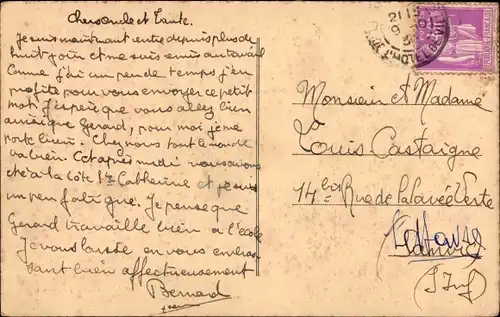 Chers Oncle et Tante.
Je suis maintenant entré depuis plus de
huit jour et me suis amis au travail
Comme j'ai un peu de temps j'en
profite pour vous envoyer ce petit
mot. J'espère que vous allez bien
ainsi que Gerard, pour moi je me
porte bien. Chez nous tout le monde
va bien. Cet après midi nous avons
été à la côte Ste Catherine et je suis
un peu fatigué. Je pense que
Gerard travaille bien à l'école
Je vous laisse en vous embras-
sant bien affectueusement
Bernard
Monsieur et Madame
Louis Castaigne
14 bis Rue de la Cavée Verte
(S. Inf)
POSTES
REPUBLIQUE FRANÇAISE